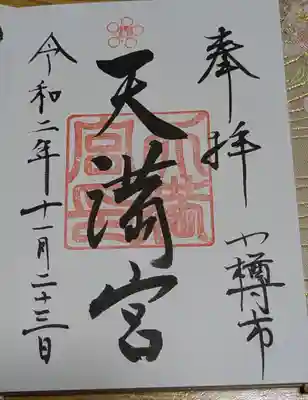 奉拝 小樽市
天満宮
令和二年十一月二十三日